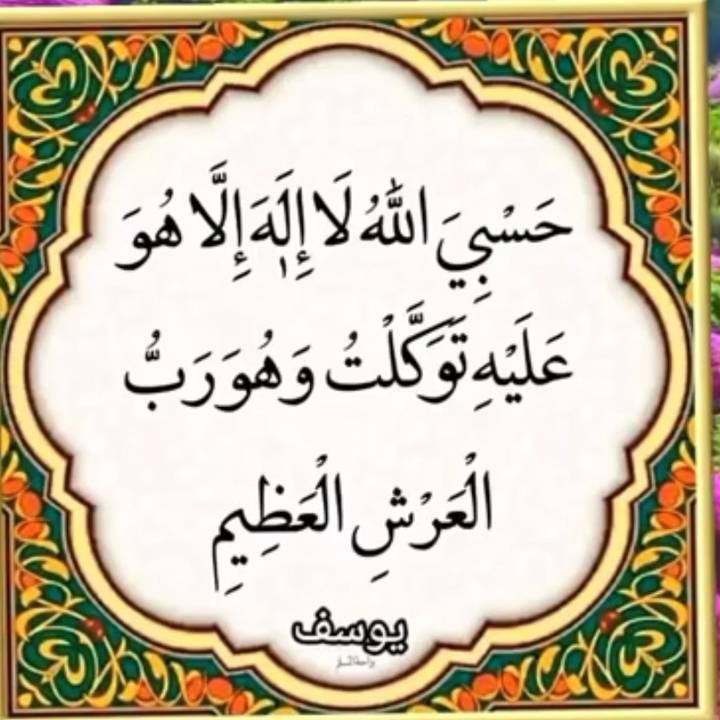 حَسْبِيَ اللَّهُ لَا إِلَٰهَ إِلَّا هُوَ
عَلَيْهِ تَوَكَّلْتُ وَهُوَ رَبُّ
الْعَرْشِ الْعَظِيمِ
يوسف